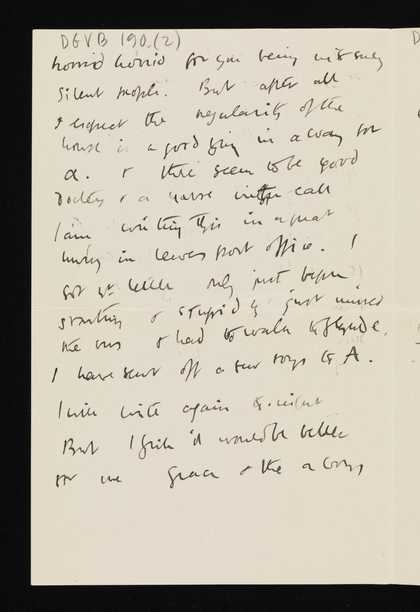 DGVB 190.(2)
horrid horrid for you being with such
silent people. But after all
I expect the regularity of the
house is a good thing in a way for
A. & there seem to be good
Doctors & a nurse in call
I am writing this in a great
hurry in Lewes post office. I
got yr letter only just before
starting & stupidly just missed
the bus & had to walk to Glynde.
I have sent off a few toys to A.
I will write again
But I think it would be better
for me Grace & the